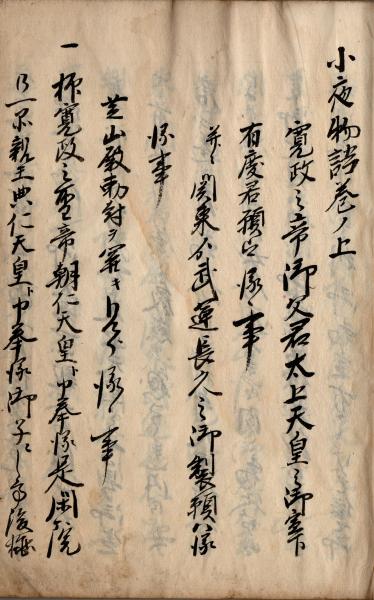 小夜物語巻ノ上
寛政之帝御父君太上天皇之御宣下
有度君願候事
并ニ関東ゟ武運長久之御製願候
事
芝山殿勅封ヲ開キ候事
一 抑寛政之聖帝朝仁天皇ト申奉候是閑院
一品親王典仁天皇ト申奉候御子ニして後桃